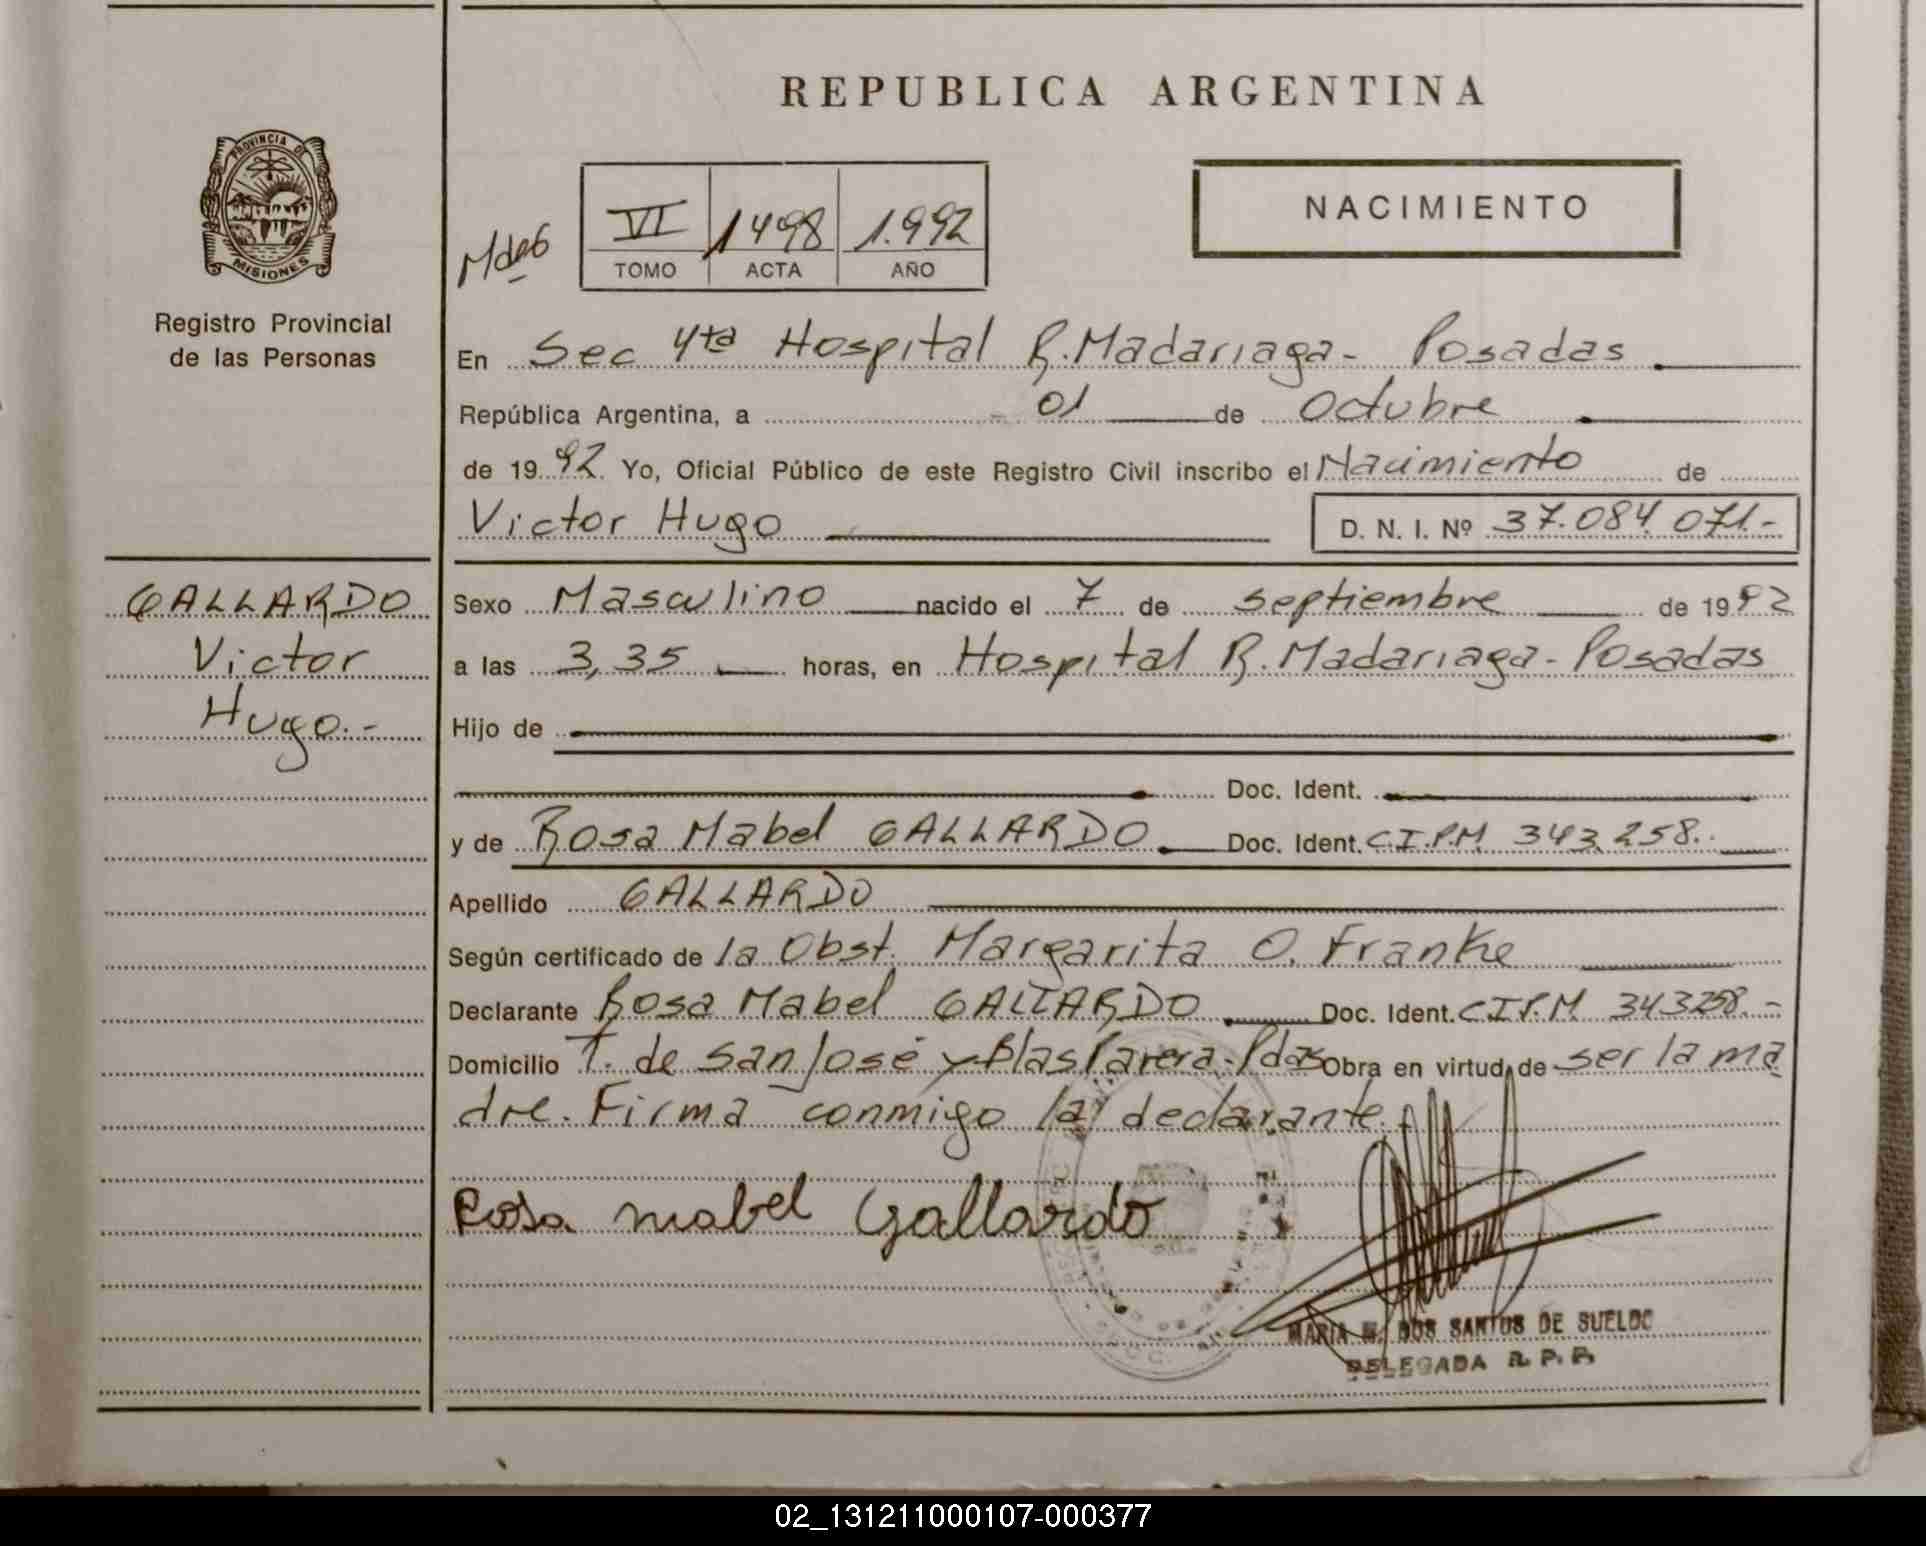 REPUBLICA ARGENTINA
PROVINCIA DE
MISIONES
Registro Provincial
de las Personas
NACIMIENTO
VI 1498 1.992
TOMO ACTA AÑO
En Sec 4ta Hospital R. Madariaga - Posadas
República Argentina, a 01 de Octubre
de 1992. Yo, Oficial Público de este Registro Civil inscribo el Nacimiento de
Victor Hugo D. N. I. Nº 37.084.071.-
GALLARDO
Victor
Hugo.-
Sexo Masculino nacido el 7 de septiembre de 1992
a las 3,35 horas, en Hospital R. Madariaga - Posadas
Hijo de
Doc. Ident.
y de Rosa Mabel GALLARDO. Doc. Ident. C.I.P.M. 343.258.
Apellido GALLARDO
Según certificado de la Obst. Margarita O. Franke
Declarante Rosa Mabel GALLARDO Doc. Ident. C.I.P.M. 343258.-
Domicilio T. de San José y Blas Parera - Pdas Obra en virtud de ser la ma
dre. Firma conmigo la declarante.
Rosa mabel Gallardo
MARIA M. DOS SANTOS DE SUELDO
DELEGADA R. P. P.
02_131211000107-000377